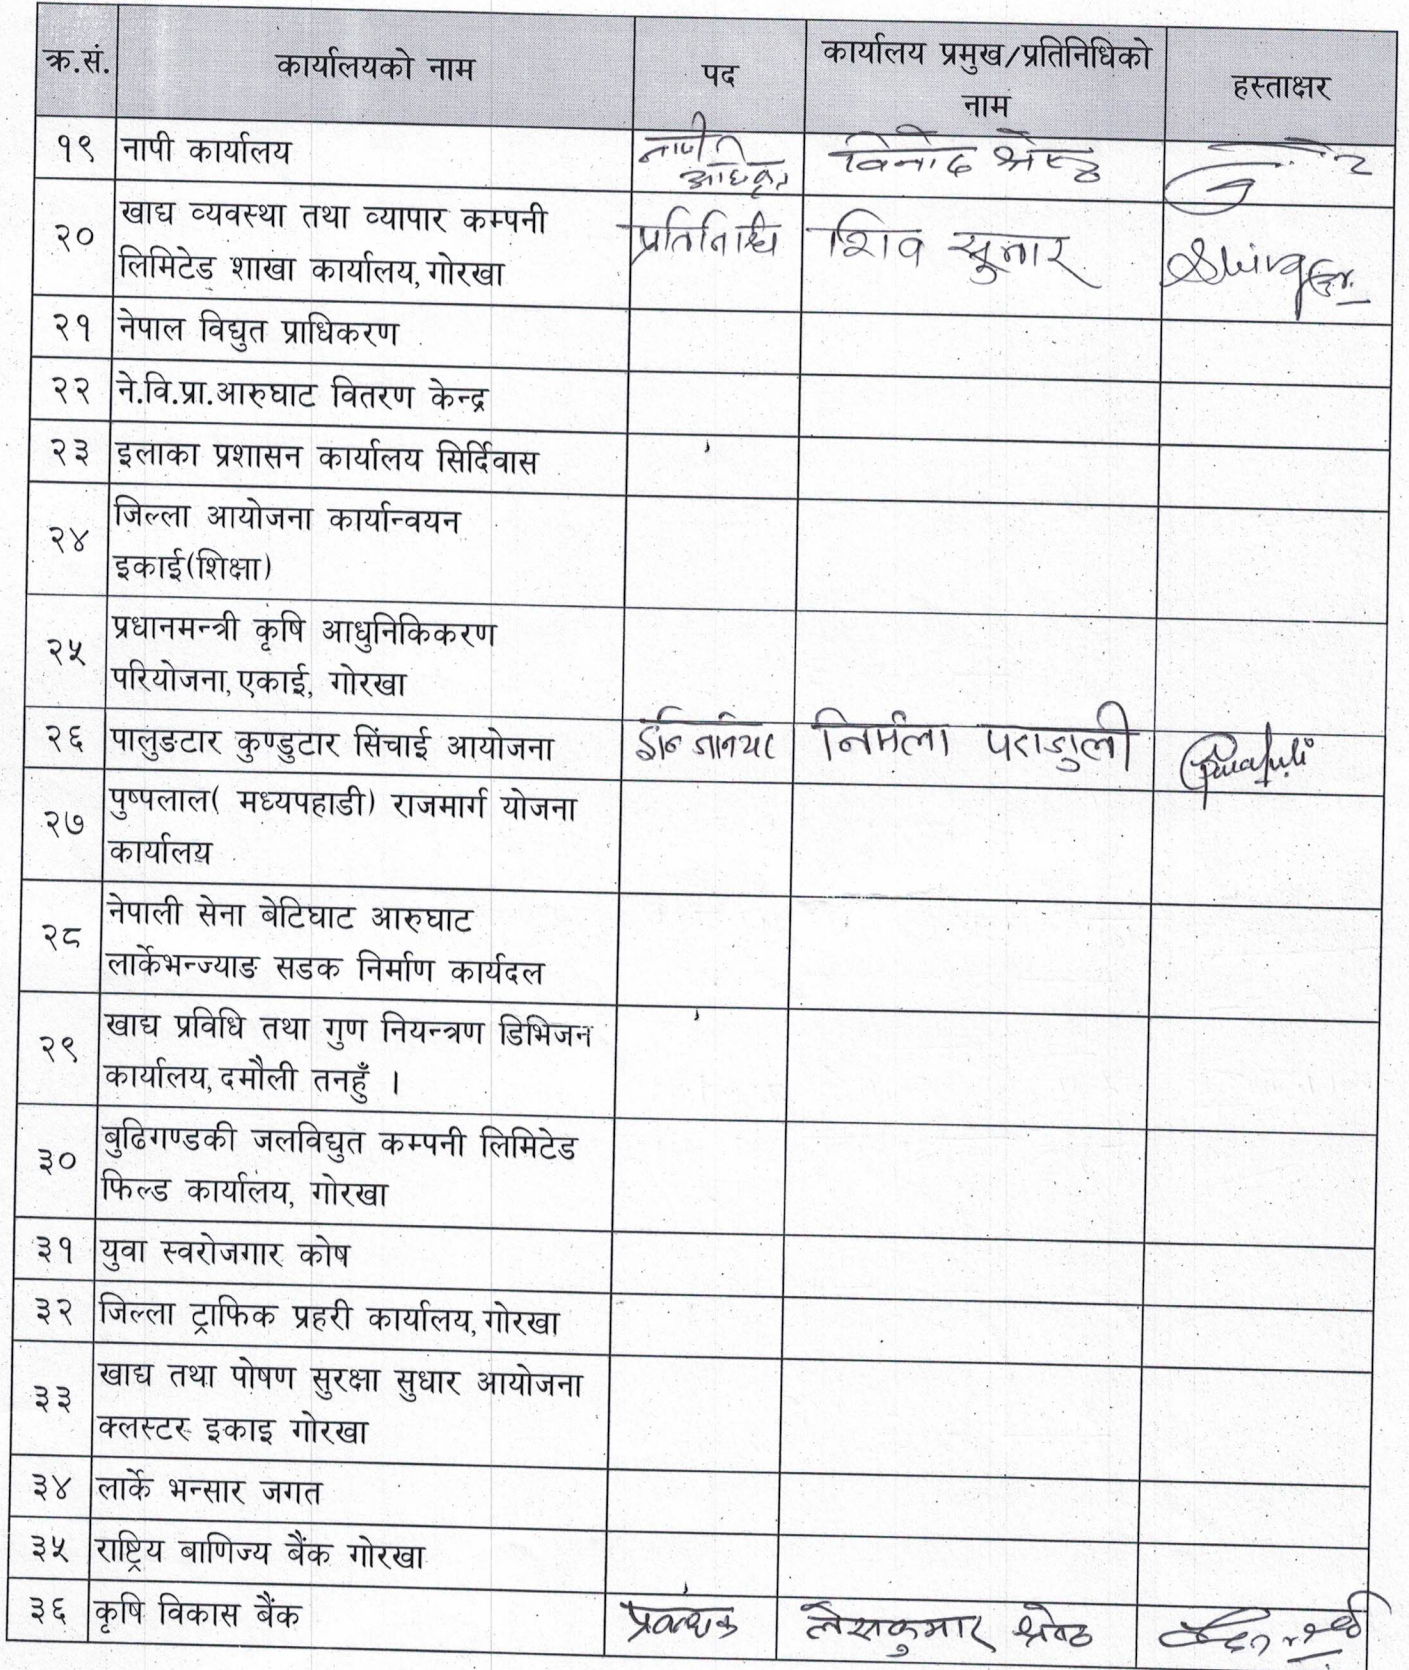 क्र.सं. कार्यालयको नाम पद कार्यालय प्रमुख/प्रतिनिधिको नाम हस्ताक्षर
१९ नापी कार्यालय नापी अधिकृत विनोद श्रेष्ठ
२० खाद्य व्यवस्था तथा व्यापार कम्पनी
लिमिटेड शाखा कार्यालय, गोरखा प्रतिनिधि शिव सुनार
२१ नेपाल विद्युत प्राधिकरण
२२ ने.वि.प्रा.आरुघाट वितरण केन्द्र
२३ इलाका प्रशासन कार्यालय सिर्दिवास
२४ जिल्ला आयोजना कार्यान्वयन
इकाई(शिक्षा)
२५ प्रधानमन्त्री कृषि आधुनिकिकरण
परियोजना, एकाई, गोरखा
२६ पालुङटार कुण्डुटार सिंचाई आयोजना निर्मला पराजुली
२७ पुष्पलाल( मध्यपहाडी) राजमार्ग योजना
कार्यालय
२८ नेपाली सेना बेटिघाट आरुघाट
लार्केभन्ज्याङ सडक निर्माण कार्यदल
२९ खाद्य प्रविधि तथा गुण नियन्त्रण डिभिजन
कार्यालय, दमौली तनहुँ ।
३० बुढिगण्डकी जलविद्युत कम्पनी लिमिटेड
फिल्ड कार्यालय, गोरखा
३१ युवा स्वरोजगार कोष
३२ जिल्ला ट्राफिक प्रहरी कार्यालय, गोरखा
३३ खाद्य तथा पोषण सुरक्षा सुधार आयोजना
क्लस्टर इकाइ गोरखा
३४ लार्के भन्सार जगत
३५ राष्ट्रिय बाणिज्य बैंक गोरखा
३६ कृषि विकास बैंक प्रवन्धक श्रेष्ठ